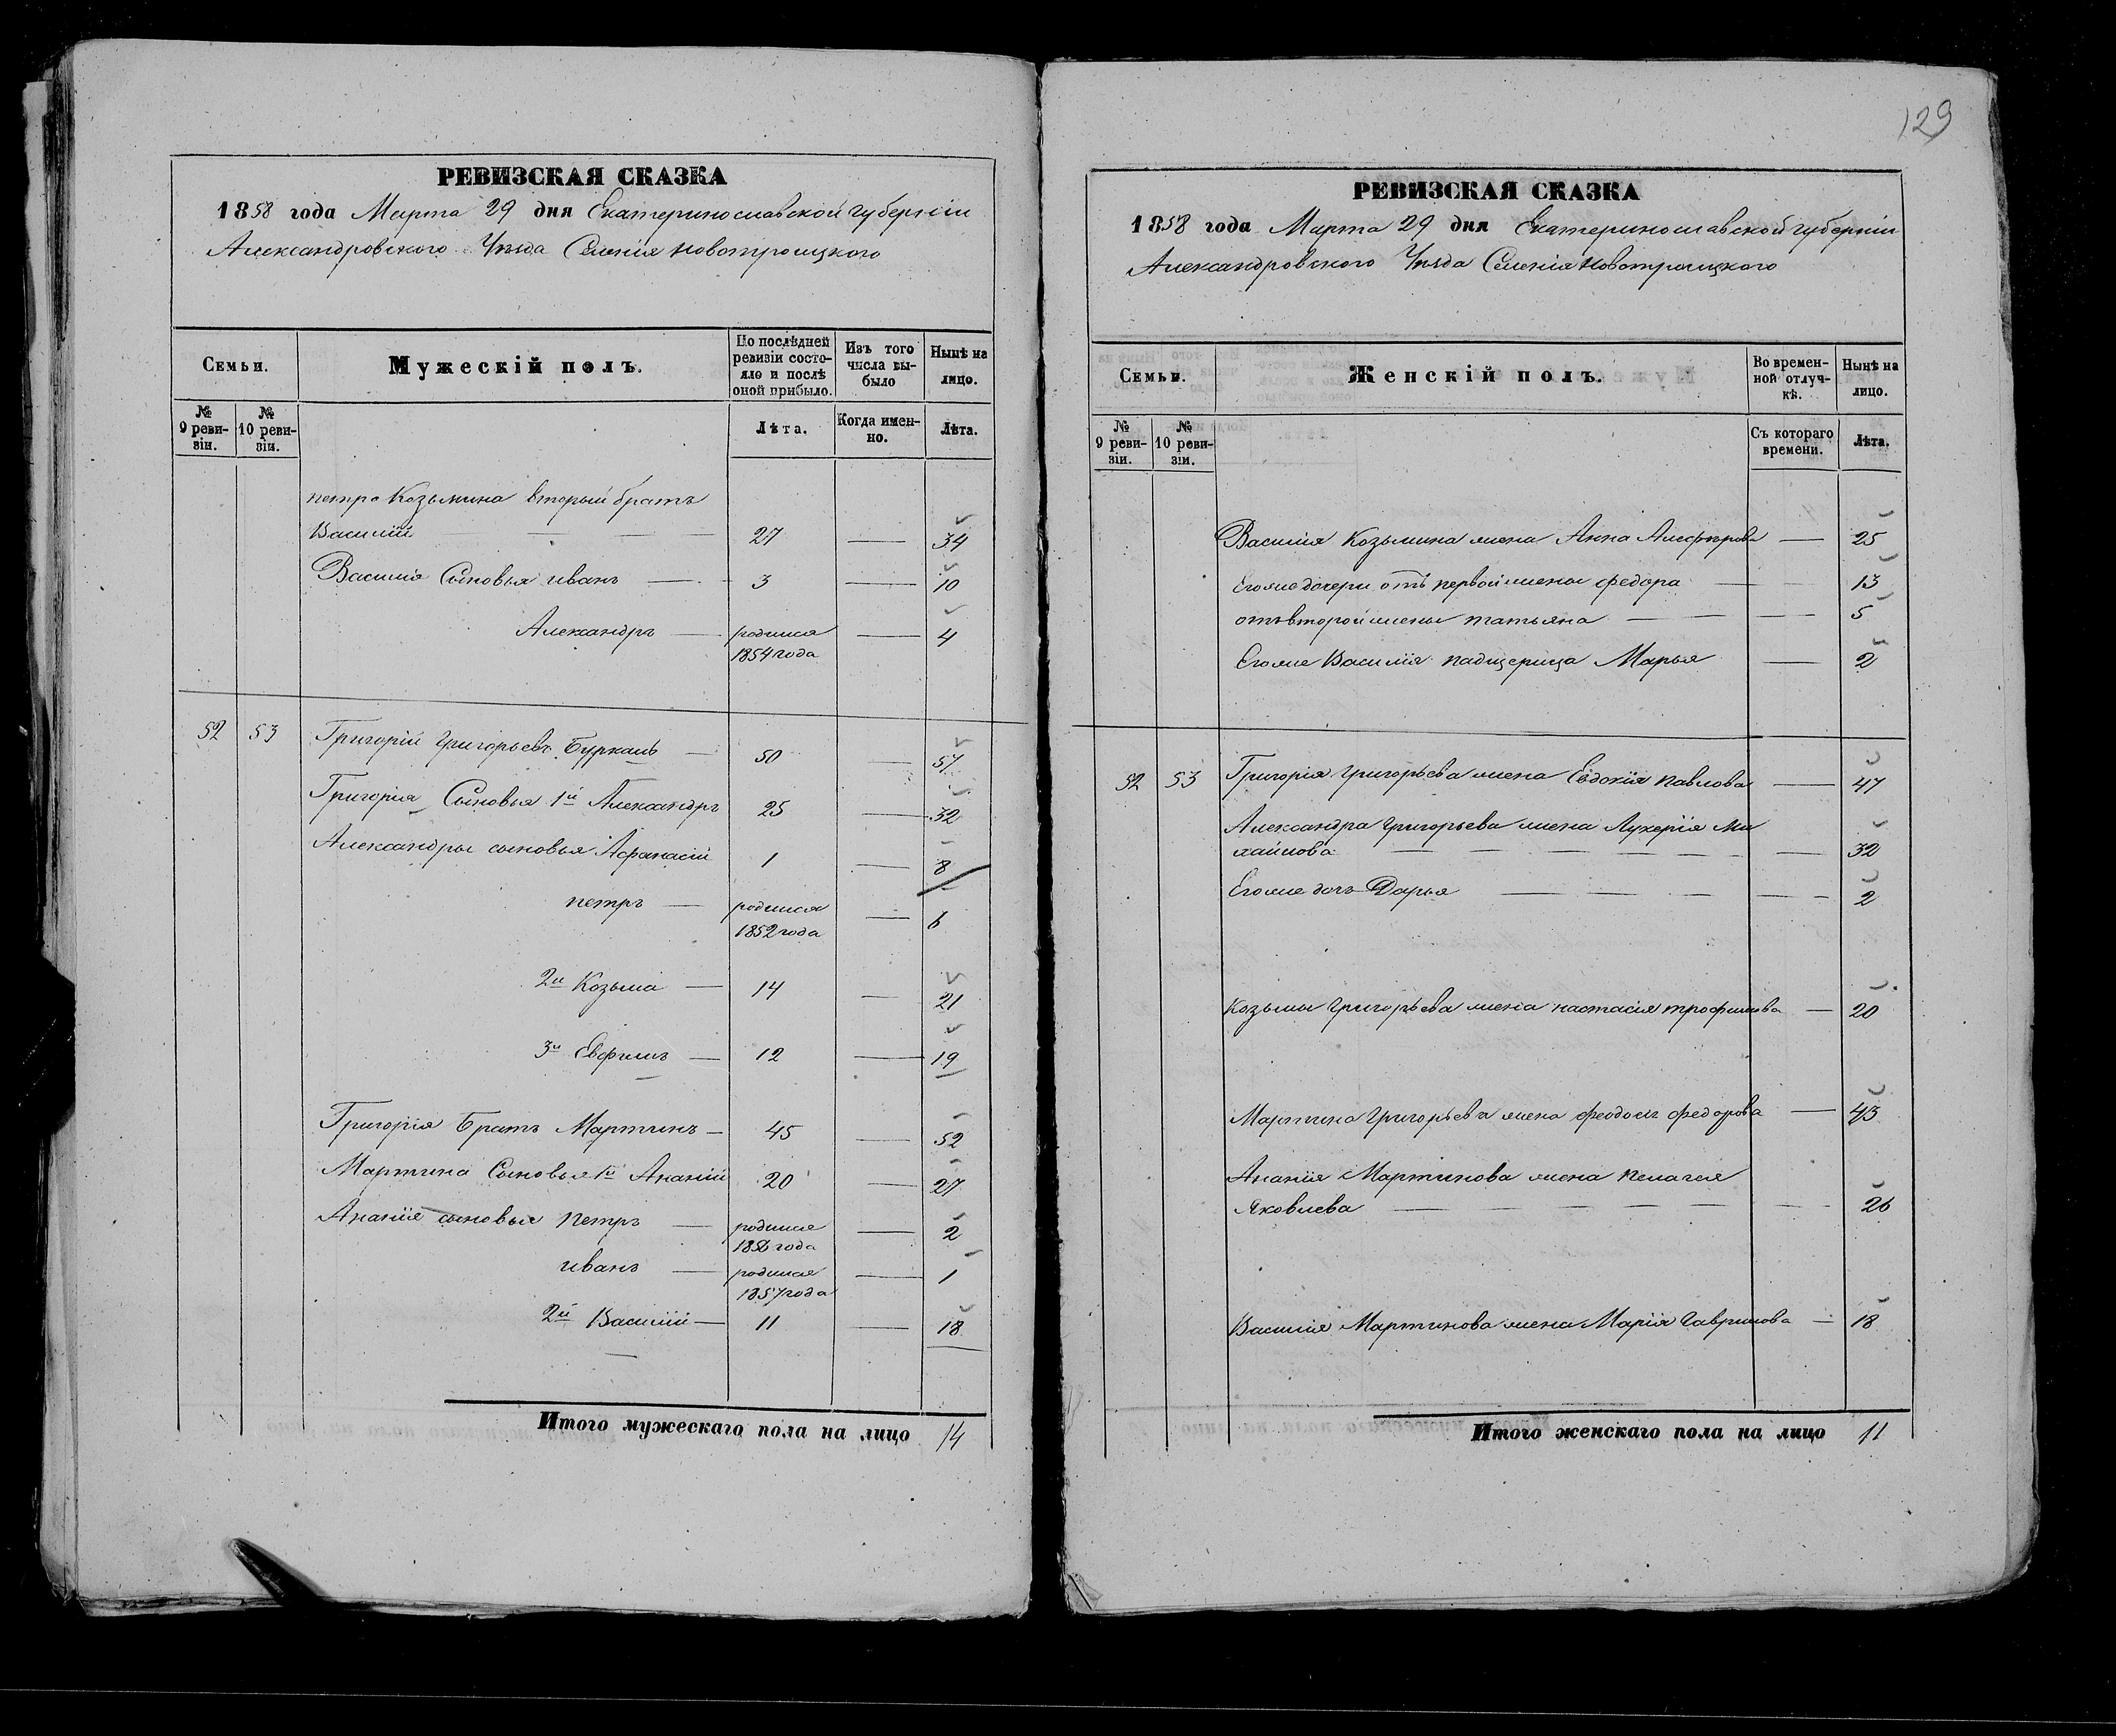 РЕВИЗСКАЯ СКАЗКА
1858 года Марта 29 дня Екатеринославской губерніи
Александровского Уѣзда Селенія Новотроицкого
Семьи.
Мужескій полъ.
По послѣдней ревизіи состояло и послѣ оной прибыло.
Изъ того числа выбыло
Нынѣ на лицо.
№ 9 ревизіи.
№ 10 ревизіи.
Лѣта.
Когда именно.
Лѣта.
петра Козьмина вторый братъ
Василій 27 34
Василія Сыновья иванъ 3 10
Александръ родился 1854 года 4
52 53 Григорій Григорьевъ Буркань 50 57
Григорія Сыновья 1й Александръ 25 32
Александры сыновья Афанасій 1 8
петръ родился 1852 года 6
2й Козьма 14 21
3й Евфимъ 12 19
Григорія Братъ Мартинъ 45 52
Мартина Сыновья 1й Ананій 20 27
Ананія сыновья Петръ родился 1856 года 2
иванъ родился 1857 года 1
2й Василій 11 18
Итого мужескаго пола на лицо 14
129
РЕВИЗСКАЯ СКАЗКА
1858 года Марта 29 дня Екатеринославской губерніи
Александровского Уѣзда Селенія Новотроицкого
Семьи.
Женскій полъ.
Во временной отлучкѣ.
Нынѣ на лицо.
№ 9 ревизіи.
№ 10 ревизіи.
Съ котораго времени.
Лѣта.
Василія Козьмина жена Анна 25
Егоже дочери отъ первой жены федора 13
отъ второй жены татьяна 5
Егоже Василія падщерица Марья 2
52 53 Григорія Григорьева жена Евдокія павлова 47
Александра Григорьева жена Лукерія Ми
хайлова 32
Егоже дочь Дарья 2
Козьмы Григорьева жена настасія трофимова 20
Мартина Григорьева жена феодосія федорова 43
Ананія Мартинова жена пелагея
Яковлева 26
Василія Мартинова жена Марія Гаврилова 18
Итого женскаго пола на лицо 11